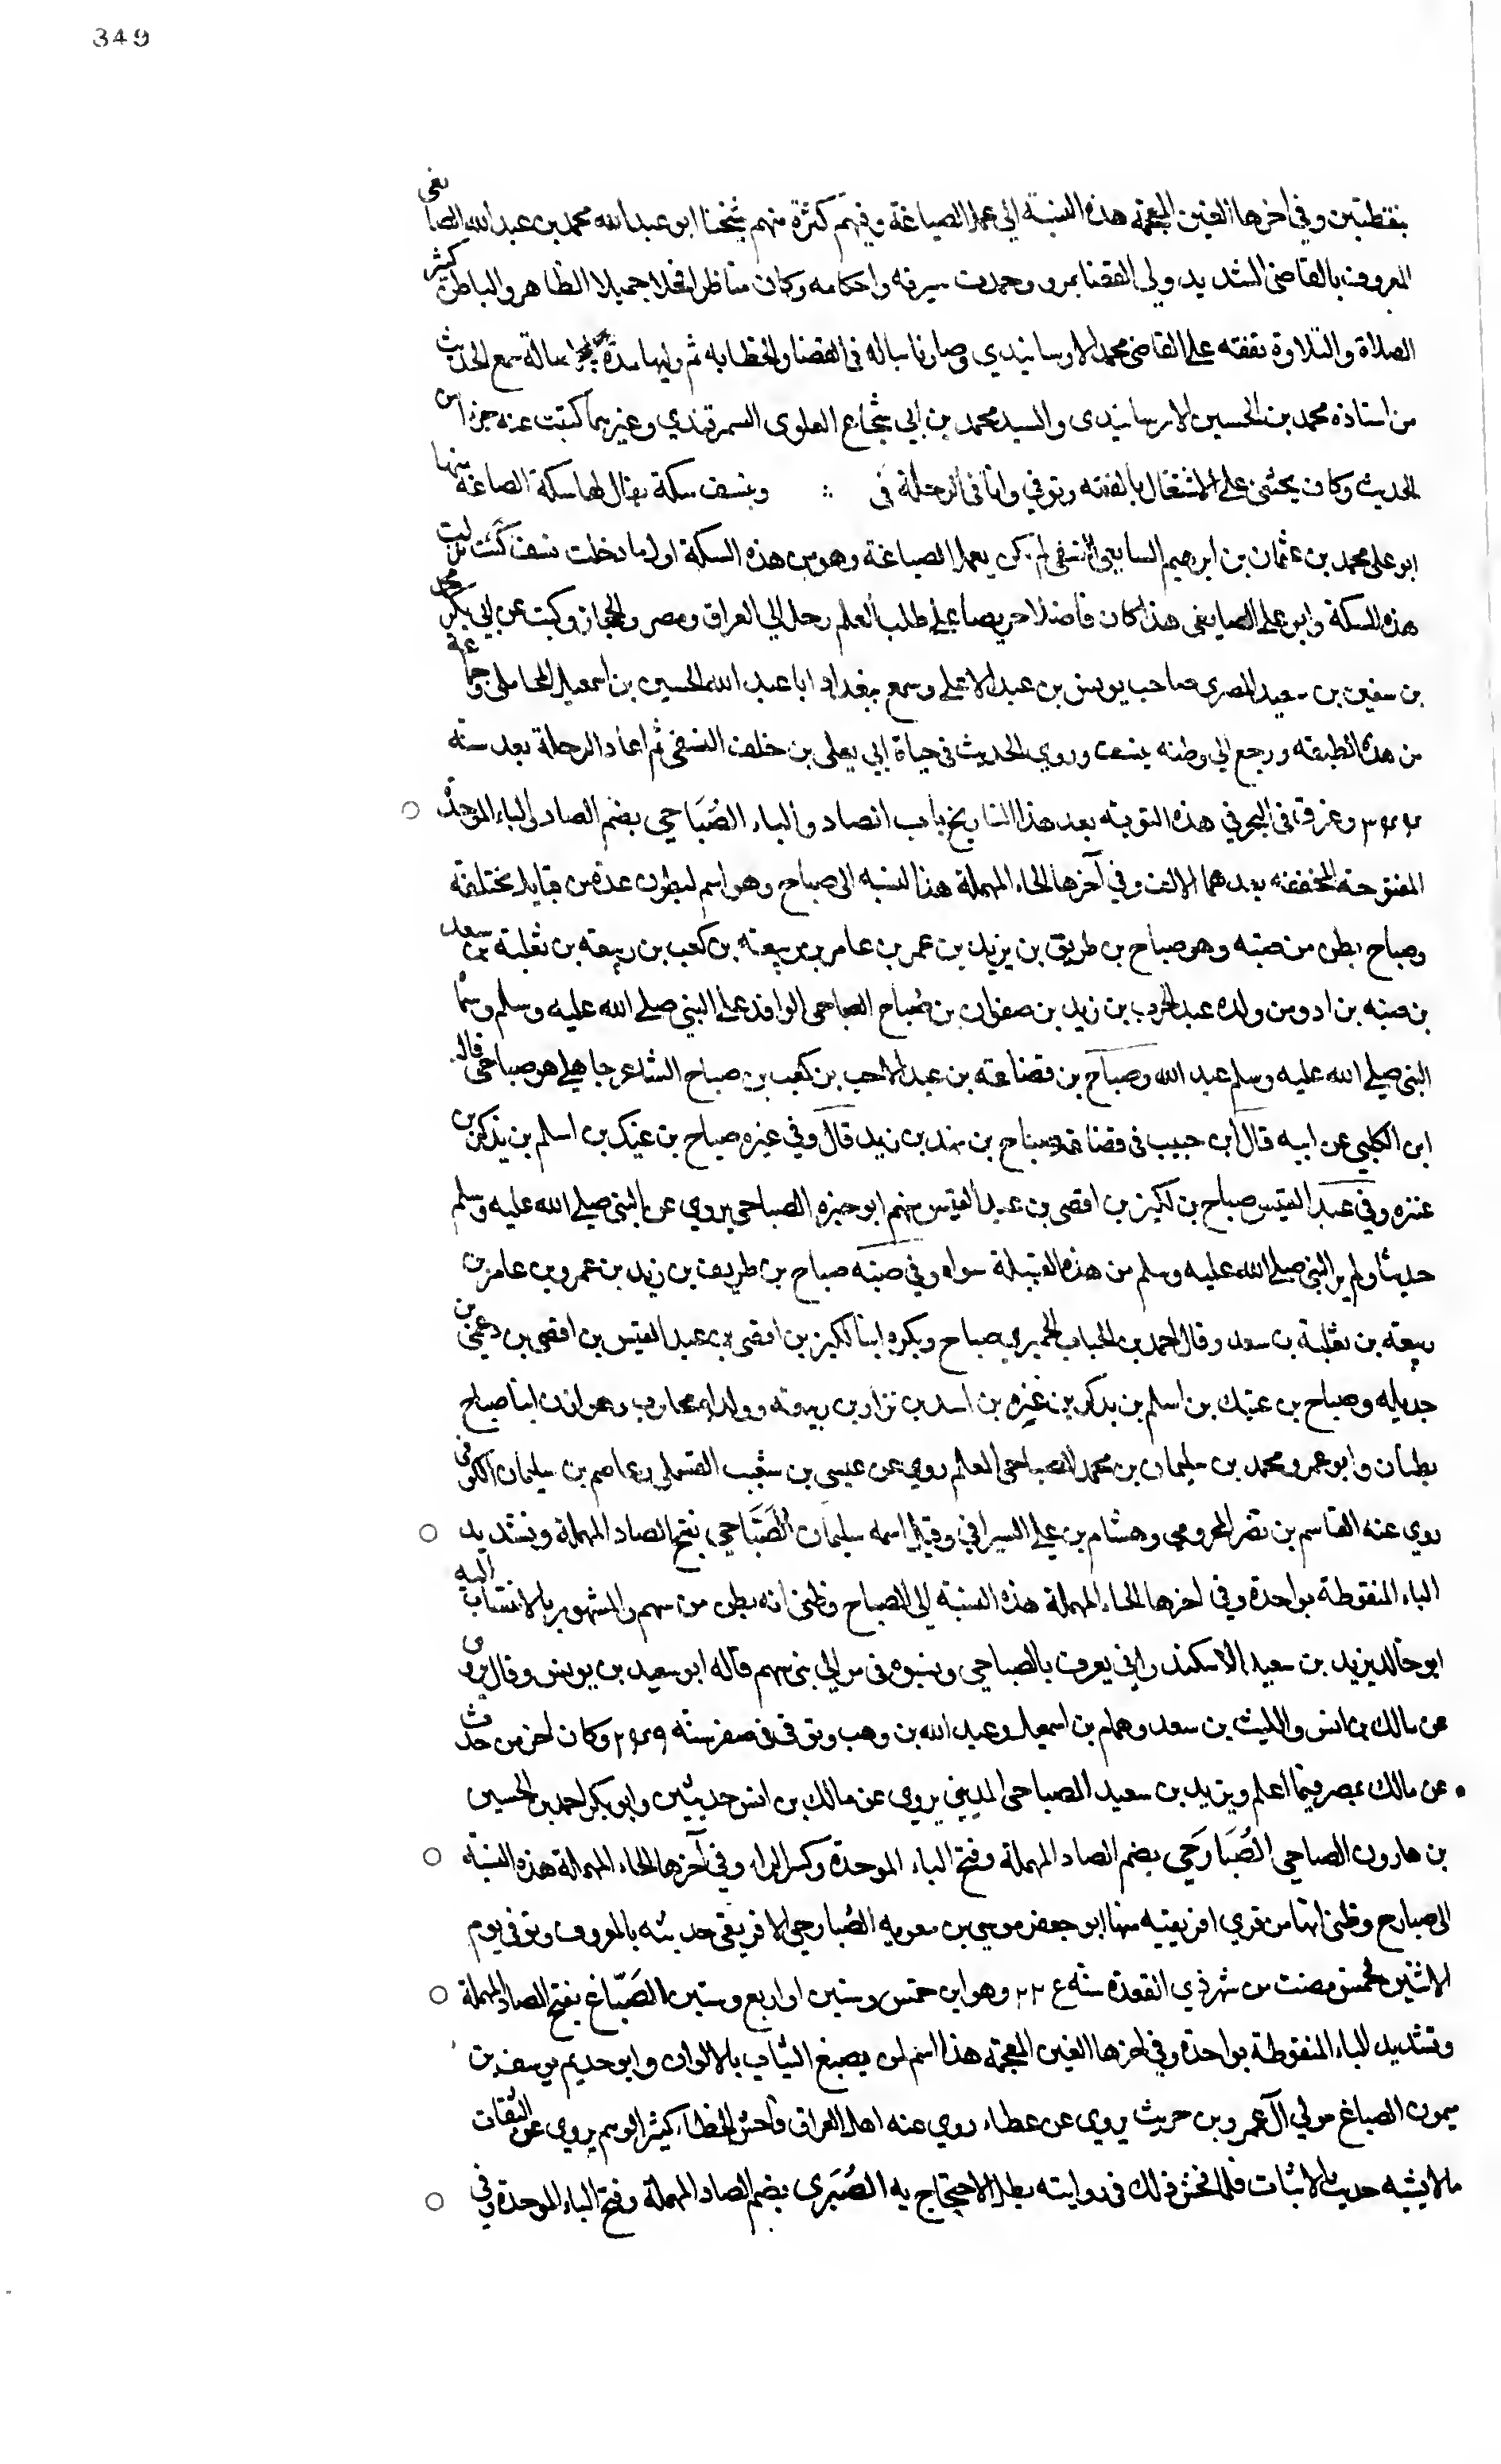 349
بنقطتين وفي اخرها الغين المعجمة هذه النسبة الى عمل الصياغة وفيهم كثرة منهم شيخنا ابو عبد الله محمد بن عبد الله الصايغى
المعروف بالقاضى الشديد ولى القضا بمرو وحمدت سيرته واحكامه وكان مناظرا فحلا جميل الظاهر والباطن كثير
الصلاة والتلاوة تفقه على القاضى محمد الارسانيدي وصار نايبا له فى القضا والخطابة ثم وليها مدة اصالة سمع الحديث
من استاذه محمد بن الحسين الارسانيدى والسيد محمد بن ابي شجاع العلوى السمرقندي وغيرهما كتبت عنه جزا من
الحديث وكان يحثنى على الاشتغال بالفقه وتوفي وانا فى الرحلة فى وبنسف سكة يقال لها سكة الصاغة منها
ابو على محمد بن عثمان بن ابرهيم السايغى النسفى لم يكن يعمل الصياغة وهو من هذه السكة اول ما دخلت نسف كنت نزلت
هذه السكة وابو على الصايغى هذا كان فاضلا حريصا على طلب العلم رحل الى العراق ومصر والحجاز وكتب عن ابي بكر محمد
بن سفين بن سعيد المصري صاحب يونس بن عبد الاعلى وسمع ببغداد ابا عبد الله الحسين بن اسمعيل المحاملى وجماعة
من هذه الطبقة ورجع الى وطنه بنسف وروي الحديث فى حياة ابي يعلى بن خلف النسفى ثم اعاد الرحلة بعد سنة
٣٤٤ وغرق فى البحر في هذه النوبة بعد هذا التاريخ باب الصاد والباء الصُبَاحي بضم الصاد والباء الموحدة
المفتوحة المخففة بعدهما الالف وفي آخرها الحاء المهملة هذا النسبه الى صباح وهو اسم لبطون عدة من قبايل مختلفة
وصباح بطن من ضبه وهو صباح بن طريق بن يزيد بن عمر بن عامر بن ربيعة بن كعب بن ربيعة بن ثعلبة بن سعد
بن ضبه بن اد ومن ولده عبد الحرث بن زيد بن صفوان بن صُباح الصباحى الوافد على النبي صلى الله عليه وسلم وسماه
النبى صلى الله عليه وسلم عبد الله وصباح بن قضاعة بن عبد الاحب بن كعب بن صباح الشاعر جاهلى هو صباحى قاله
ابن الكلبي عن ابيه قال ابن حبيب فى قضاعة صباح بن نهد بن زيد قال وفي عنزه صباح بن عتيك بن اسلم بن يذكر بن
عنزه وفي عبد القيس صباح بن لكيز بن افصى بن عبد القيس منهم ابو خيره الصباحي يروي عن النبى صلى الله عليه وسلم
حديثا ولم ير النبى صلى الله عليه وسلم من هذه القبيلة سواه وفي ضبه صباح بن طريف بن زيد بن عمرو بن عامر بن
ربيعة بن ثعلبة بن سعد وقال احمد بن الحباب الحميري صباح وبكره ابنا لكيز بن افصى بن عبد القيس بن افصى بن دعمى بن
جديله وصباح بن عتيك بن اسلم بن يذكر بن عنزه بن اسد بن نزار بن ربيعة وولد له محارب وهزان ابنا صباح
بطنان وابو عمرو محمد بن سليمان بن محمد الصباحى المعلم روي عن عيسى بن شعيب القسملى بن عاصم بن سليمان الكوفى
روي عنه القاسم بن نصر المخرومي وهشام بن علي السيرافي وقيل اسمه سليمان الصَبَّاحي بفتح الصاد المهملة وتشديد
الباء المنقوطة بواحدة وفي اخرها الحاء المهملة هذه النسبة الى الصباح وظنى انه بطن من سهم والمشهور بالانتساب اليه
ابو خالد يزيد بن سعيد الاسكندراني يعرف بالصباحي ونسبوه فى موالي بنى سهم قاله ابو سعيد بن يونس وقال يروى
عن مالك بن انس والليث بن سعد وهمام بن اسمعيل وعبد الله بن وهب وتوفى فى صفر سنة ٢٤٩ وكان اخر من حدث
عن مالك بمصر فيما اعلم ويزيد بن سعيد الصباحى المديني يروي عن مالك بن انس حديثين وابو بكر احمد بن الحسين
بن هارون الصباحي الصُبَارَحي بضم الصاد المهملة وفتح الباء الموحدة وكسر الراء وفي آخرها الحاء المهملة هذه النسبة
الى صبارح وظنى انها من قري افريقيه منها ابو جعفر موسى بن معويه الصُبارحي الافريقى حديثه بالمعروف وتوفى يوم
الاثنين لخمس مضت من شهر ذي القعدة سنة ٢٢٤ وهو ابن خمس وستين او اربع وستين الصَبّاغ بفتح الصاد المهملة
وتشديد الباء المنقوطة بواحدة وفي اخرها الغين المعجمة هذا اسم لمن يصبغ الثياب بالالوان وابو حديم يوسف بن
ميمون الصباغ مولى آل عمرو بن حريث يروي عن عطاء روي عنه اهل العراق فاحش الخطاء كثير الوهم يروي عن الثقات
ما لا يشبه حديث الاثبات فلما فحش ذلك فى روايته بطل الاحتجاج به الصُبَرى بضم الصاد المهملة وفتح الباء الموحدة وفى